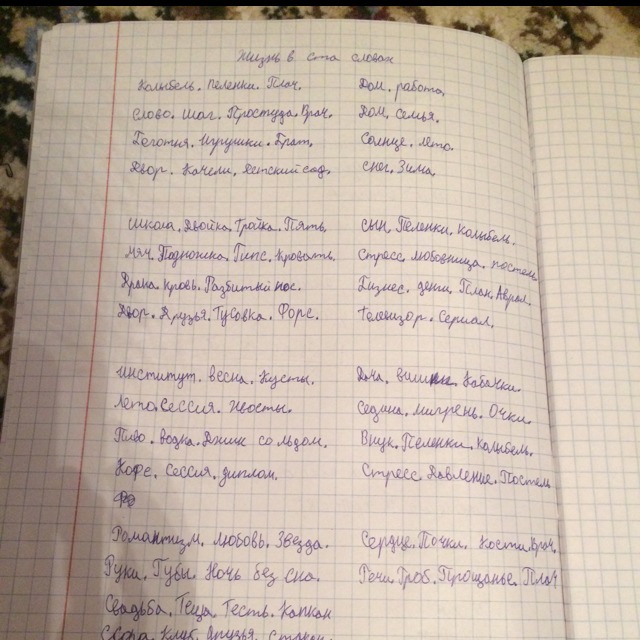 Жизнь в ста словах
Колыбель. Пеленки. Плач.
Слово. Шаг. Простуда. Врач.
Беготня. Игрушки. Брат.
Двор. Качели. Детский сад.
Школа. Двойка. Тройка. Пять.
Мяч. Подножка. Гипс. Кровать.
Драка. Кровь. Разбитый нос.
Двор. Друзья. Тусовка. Форс.
Институт. Весна. Кусты.
Лето. Сессия. Хвосты.
Пиво. Водка. Джин со льдом.
Кофе. Сессия. Диплом.
Романтизм. Любовь. Звезда.
Руки. Губы. Ночь без сна.
Свадьба. Теща. Тесть. Капкан
Ссора. Клуб. Друзья. Стакан.
Дом. работа.
Дом. Семья.
Солнце. Лето.
Снег. Зима.
Сын. Пеленки. Колыбель.
Стресс. Любовница. Постель
Бизнес. деньги. План. Аврал.
Телевизор. Сериал.
Дача. Кабачки.
Седина. Мигрень. Очки.
Внук. Пеленки. Колыбель.
Стресс. Давление. Постель
Сердце. Почки. Кости. Врач.
Речи. Гроб. Прощанье. Плач